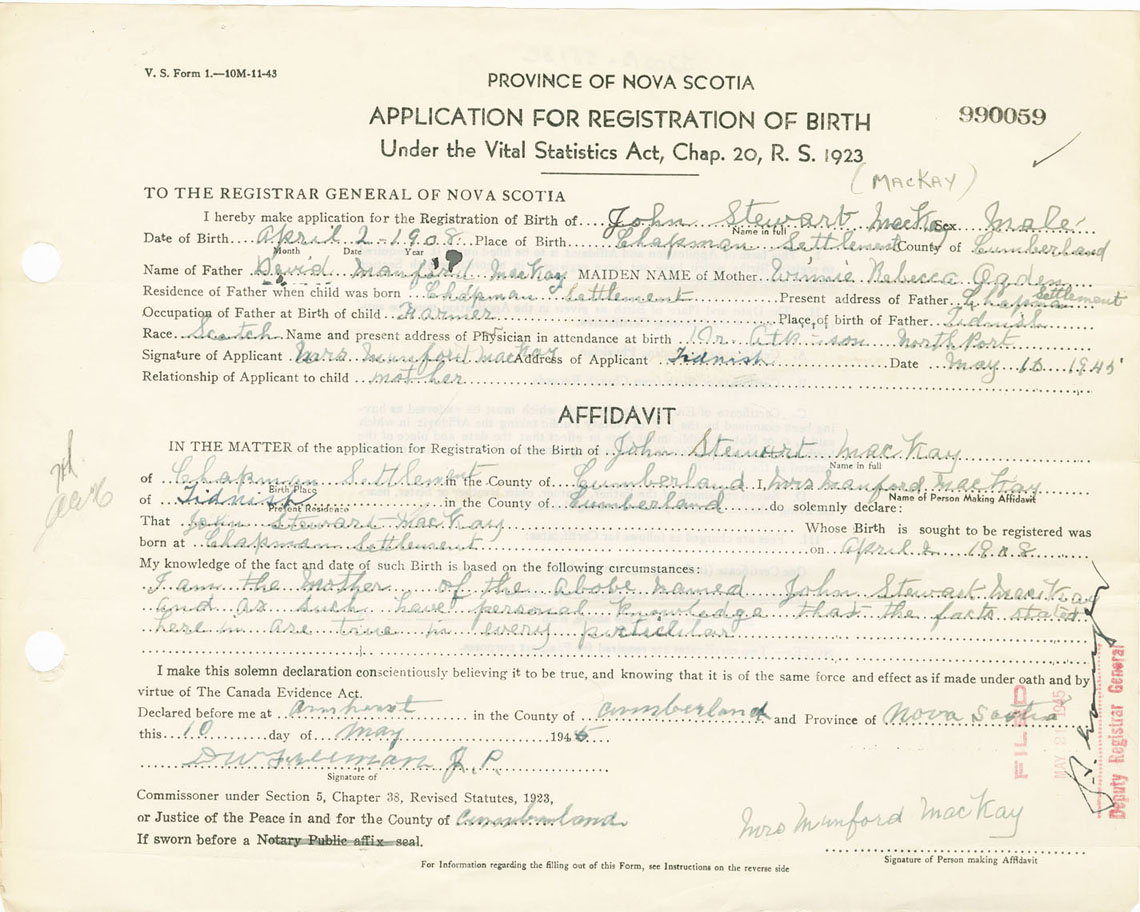 V. S. Form 1.—10M-11-43
PROVINCE OF NOVA SCOTIA
APPLICATION FOR REGISTRATION OF BIRTH
990059
Under the Vital Statistics Act, Chap. 20, R. S. 1923
(MACKAY)
TO THE REGISTRAR GENERAL OF NOVA SCOTIA
I hereby make application for the Registration of Birth of John Stewart MacKay Sex Male
Name in full
Date of Birth April 2 - 1908 Place of Birth Chapman Settlement County of Cumberland
Month Date Year
Name of Father David Manford MacKay MAIDEN NAME of Mother Winnie Rebecca Ogden
Residence of Father when child was born Chapman Settlement Present address of Father Chapman Settlement
Occupation of Father at Birth of child Farmer Place of birth of Father Tidnish
Race Scotch Name and present address of Physician in attendance at birth Dr. Atkinson North Port
Signature of Applicant Mrs Munford MacKay Address of Applicant Tidnish Date May 10 1945
Relationship of Applicant to child mother
AFFIDAVIT
IN THE MATTER of the application for Registration of the Birth of John Stewart MacKay
Name in full
of Chapman Settlement in the County of Cumberland I, Mrs Manford MacKay
Birth Place Name of Person Making Affidavit
of Tidnish in the County of Cumberland do solemnly declare:
Present Residence
That John Stewart MacKay Whose Birth is sought to be registered was
born at Chapman Settlement on April 2 1908
My knowledge of the fact and date of such Birth is based on the following circumstances:
I am the Mother of the above named John Stewart MacKay
and as such have personal knowledge that the facts stated
here in are true in every particular
I make this solemn declaration conscientiously believing it to be true, and knowing that it is of the same force and effect as if made under oath and by
virtue of The Canada Evidence Act.
Declared before me at Amherst in the County of Cumberland and Province of Nova Scotia
this 10 day of May 1945
DW Freeman J. P.
Signature of
Commissoner under Section 5, Chapter 38, Revised Statutes, 1923,
or Justice of the Peace in and for the County of Cumberland
If sworn before a Notary Public affix seal.
Mrs Munford MacKay
Signature of Person making Affidavit
For Information regarding the filling out of this Form, see Instructions on the reverse side
FILED
MAY 21 1945
Deputy Registrar General